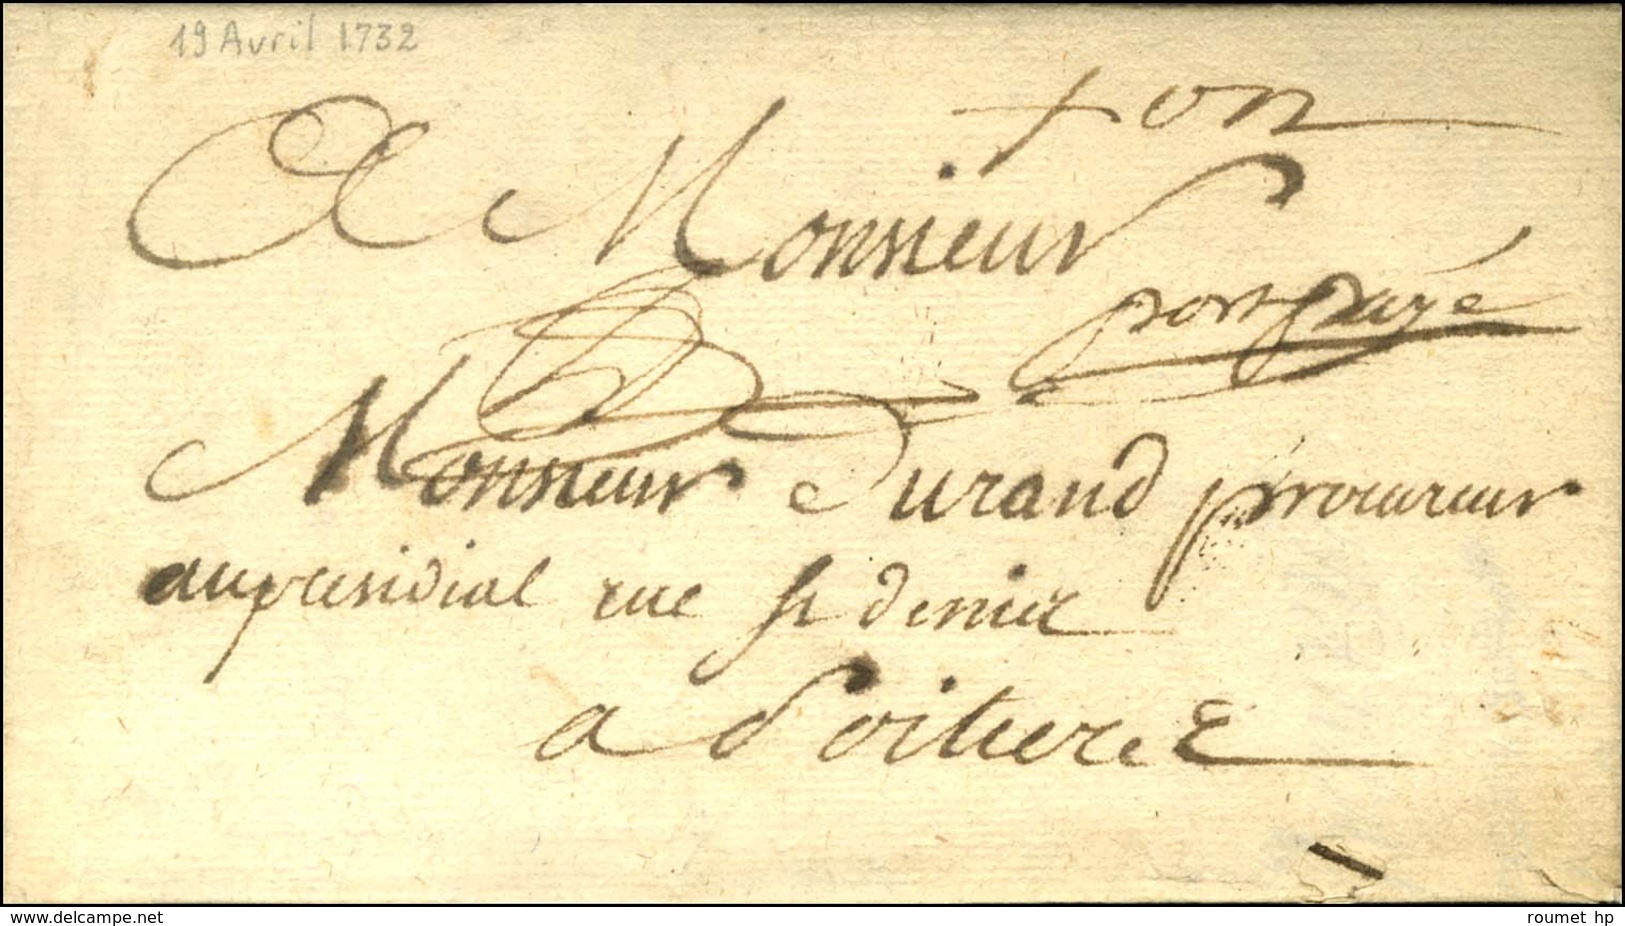 19 Avril 1732
A Monsieur
port payé
Monsieur Durand procureur
au presidial rue St denis
a Poitiers
www.delcampe.net
roumet hp